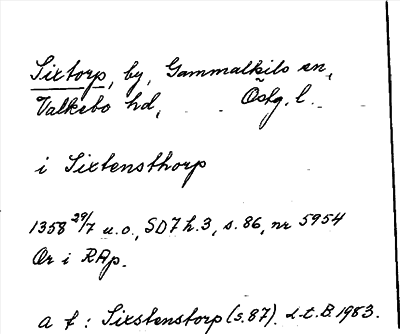 Sixtorp, by, Gammalkils sn,
Valkebo hd, Östg. l.
i Sixtensthorp
1358 29/7 u.o., SD7 h.3, s.86, nr 5954
Or i RAp.
a f: Sixstenstorp (s.87). L.t.B. 1983.